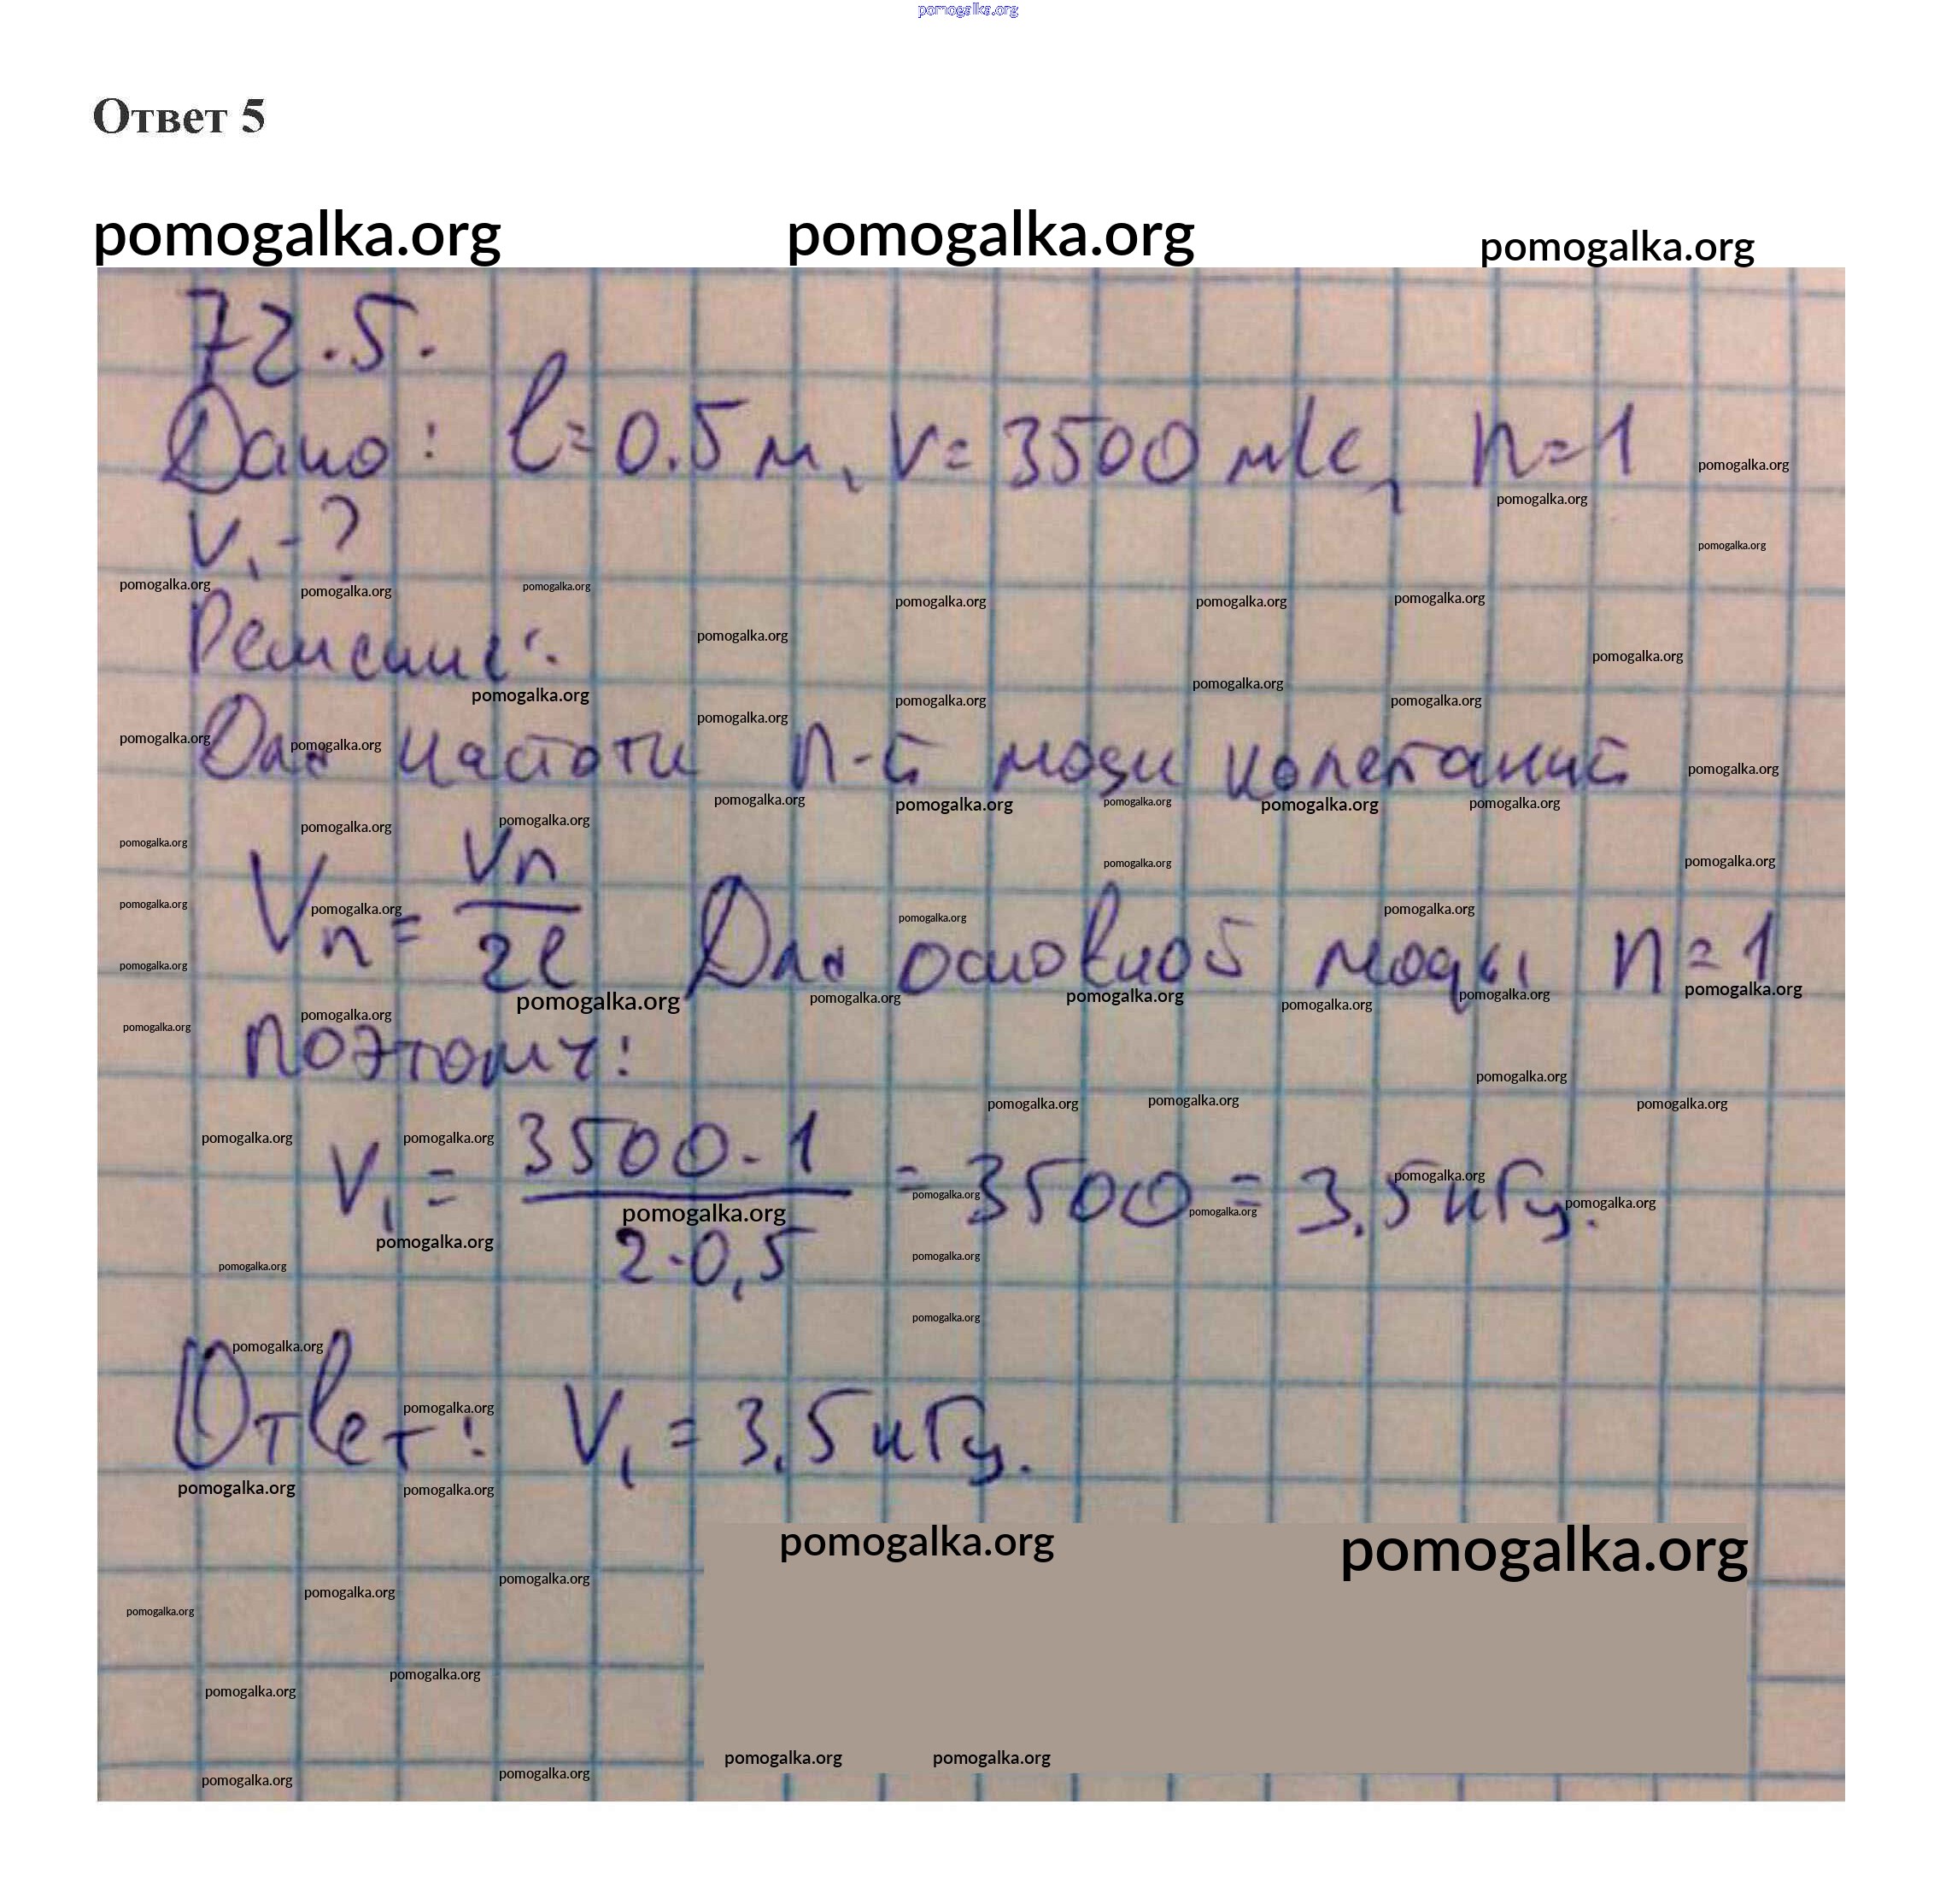 pomogalka.org
Ответ 5
pomogalka.org pomogalka.org pomogalka.org
72.5.
Дано: l=0.5 м, v=3500 м/с, n=1
pomogalka.org
pomogalka.org
ν₁-?
pomogalka.org
pomogalka.org pomogalka.org pomogalka.org
pomogalka.org pomogalka.org pomogalka.org
Решение:
pomogalka.org
pomogalka.org
pomogalka.org
pomogalka.org pomogalka.org pomogalka.org
pomogalka.org
Для частоты n-й моды колебаний
pomogalka.org pomogalka.org pomogalka.org
pomogalka.org pomogalka.org pomogalka.org pomogalka.org pomogalka.org
pomogalka.org pomogalka.org
pomogalka.org pomogalka.org pomogalka.org
νn = vn/2l Для основной моды n=1
pomogalka.org pomogalka.org pomogalka.org pomogalka.org
pomogalka.org
pomogalka.org pomogalka.org pomogalka.org pomogalka.org pomogalka.org pomogalka.org
pomogalka.org pomogalka.org
поэтому:
pomogalka.org
pomogalka.org pomogalka.org pomogalka.org
pomogalka.org pomogalka.org
ν₁ = 3500·1/2·0,5 = 3500 = 3,5 кГц.
pomogalka.org pomogalka.org pomogalka.org
pomogalka.org pomogalka.org
pomogalka.org
pomogalka.org pomogalka.org
pomogalka.org
pomogalka.org
Ответ: ν₁ = 3,5 кГц.
pomogalka.org
pomogalka.org pomogalka.org
pomogalka.org pomogalka.org
pomogalka.org pomogalka.org pomogalka.org
pomogalka.org pomogalka.org
pomogalka.org pomogalka.org
pomogalka.org pomogalka.org